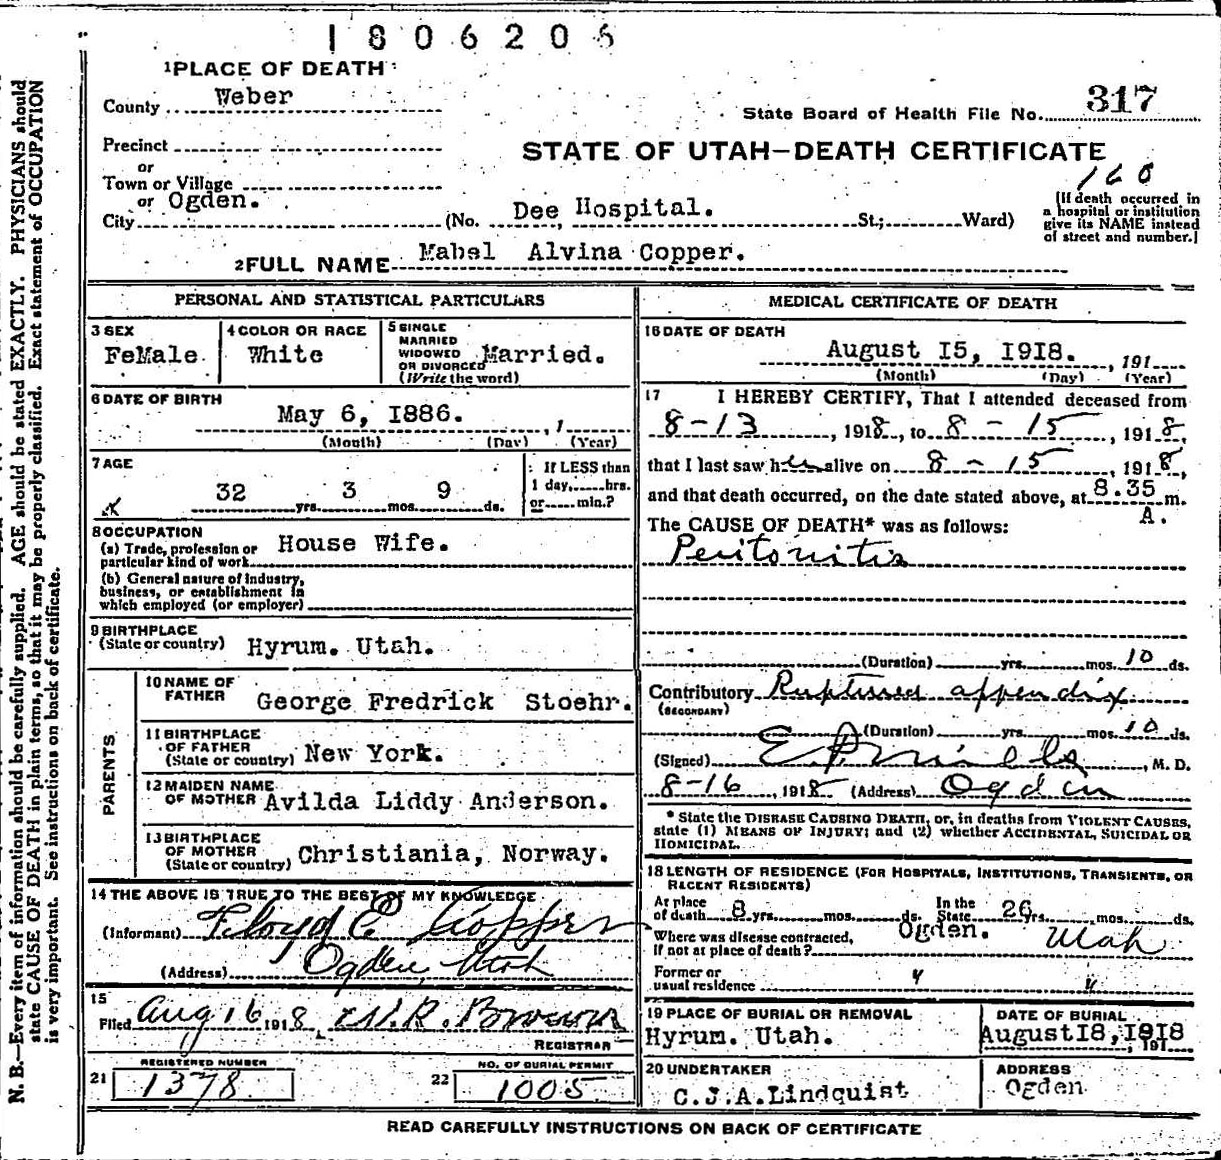 1806206
1 PLACE OF DEATH
County Weber
State Board of Health File No. 317
Precinct
or
Town or Village
or
City Ogden. (No. Dee Hospital. St.; Ward)
STATE OF UTAH—DEATH CERTIFICATE
160
(If death occurred in
a hospital or institution
give its NAME instead
of street and number.)
2 FULL NAME Mabel Alvina Copper.
PERSONAL AND STATISTICAL PARTICULARS
3 SEX
FeMale
4 COLOR OR RACE
White
5 SINGLE
MARRIED
WIDOWED
OR DIVORCED
(Write the word)
Married.
6 DATE OF BIRTH
May 6, I886. , 1
(Month) (Day) (Year)
7 AGE
32 yrs. 3 mos. 9 ds.
If LESS than
1 day, hrs.
or min.?
8 OCCUPATION
(a) Trade, profession or
particular kind of work House Wife.
(b) General nature of industry,
business, or establishment in
which employed (or employer)
9 BIRTHPLACE
(State or country) Hyrum. Utah.
PARENTS
10 NAME OF
FATHER George Fredrick Stoehr.
11 BIRTHPLACE
OF FATHER
(State or country) New York.
12 MAIDEN NAME
OF MOTHER Avilda Liddy Anderson.
13 BIRTHPLACE
OF MOTHER
(State or country) Christiania, Norway.
14 THE ABOVE IS TRUE TO THE BEST OF MY KNOWLEDGE
(Informant) Floyd E Copper
(Address) Ogden, Utah
15
Filed Aug 16 1918, W. R. Brown
REGISTRAR
21 REGISTERED NUMBER
1378
22 NO. OF BURIAL PERMIT
1005
MEDICAL CERTIFICATE OF DEATH
16 DATE OF DEATH
August I5, I9I8. , 191
(Month) (Day) (Year)
17 I HEREBY CERTIFY, That I attended deceased from
8-13 , 1918, to 8-15 , 1918,
that I last saw her alive on 8-15 , 1918,
and that death occurred, on the date stated above, at 8.35 m.
A.
The CAUSE OF DEATH* was as follows:
Peritonitis
(Duration) yrs. mos. 10 ds.
Contributory Ruptured appendix
(SECONDARY)
(Duration) yrs. mos. 10 ds.
(Signed) E. P. Mills , M. D.
8-16 , 1918 (Address) Ogden
* State the DISEASE CAUSING DEATH, or, in deaths from VIOLENT CAUSES,
state (1) MEANS OF INJURY; and (2) whether ACCIDENTAL, SUICIDAL OR
HOMICIDAL.
18 LENGTH OF RESIDENCE (FOR HOSPITALS, INSTITUTIONS, TRANSIENTS, OR
RECENT RESIDENTS)
At place
of death 8 yrs. mos. ds.
In the
State 26 yrs. mos. ds.
Where was disease contracted,
if not at place of death? Ogden. Utah
Former or
usual residence " "
19 PLACE OF BURIAL OR REMOVAL
Hyrum. Utah.
DATE OF BURIAL
August I8, I9I8 , 191
20 UNDERTAKER
C.J.A. Lindquist
ADDRESS
Ogden
READ CAREFULLY INSTRUCTIONS ON BACK OF CERTIFICATE
N. B.—Every item of information should be carefully supplied. AGE should be stated EXACTLY. PHYSICIANS should
state CAUSE OF DEATH in plain terms, so that it may be properly classified. Exact statement of OCCUPATION
is very important. See instructions on back of certificate.